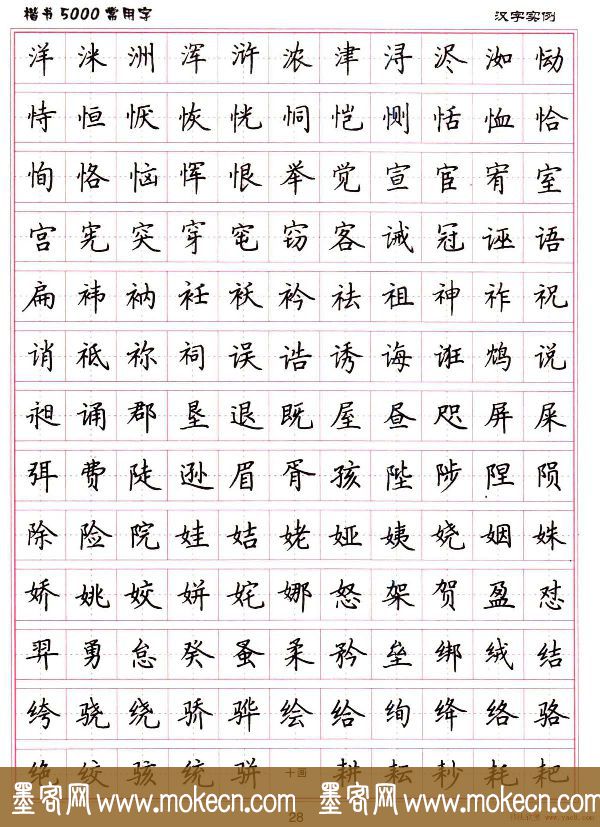 楷书5000常用字 汉字实例
洋 洣 洲 浑 浒 浓 津 浔 浕 洳 恸
恃 恒 恹 恢 恍 恫 恺 恻 恬 恤 恰
恂 恪 恼 恽 恨 举 觉 宣 宦 宥 室
宫 宪 突 穿 窀 窃 客 诫 冠 诬 语
扁 袆 衲 衽 袄 衿 祛 祖 神 祚 祝
诮 祗 祢 祠 误 诰 诱 诲 诳 鸩 说
昶 诵 郡 垦 退 既 屋 昼 咫 屏 屎
弭 费 陡 逊 眉 胥 孩 陛 陟 陧 陨
除 险 院 娃 姞 姥 娅 姨 娆 姻 姝
娇 姚 姣 姘 姹 娜 怒 架 贺 盈 怼
羿 勇 怠 癸 蚤 柔 矜 垒 绑 绒 结
绔 骁 绕 骄 骅 绘 给 绚 绛 络 骆
绝 绞 骇 统 骈 十画 耕 耘 耖 耗 耙
墨客网 www.mokecn.com 墨客网 www.mokecn.com
28